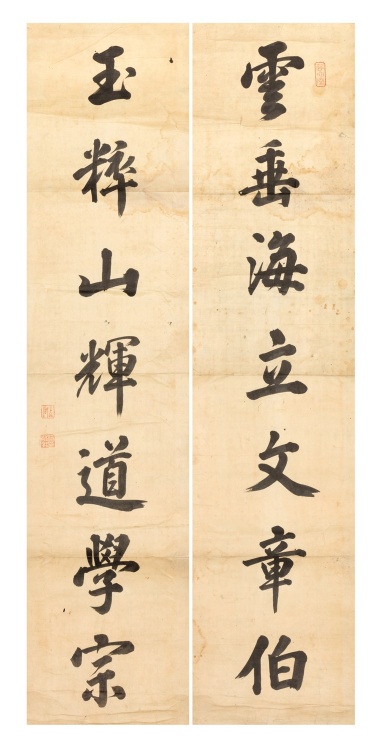 雲垂海立文章伯
玉粹山輝道學宗